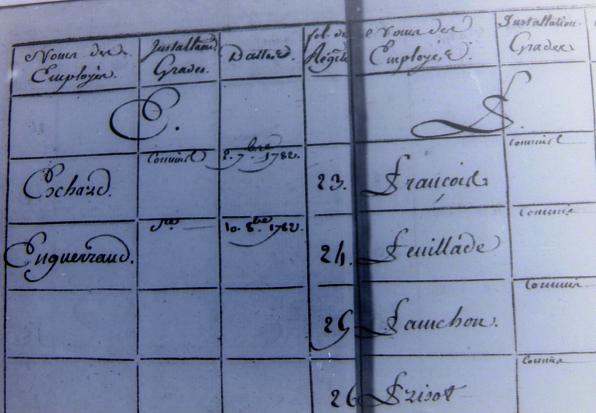 Noms des Employés
Installaon Grades.
Dattes
fol. du Régitre
Noms des Employés.
Installation Grades
E.
F
Cochard.
Commis
2. 7.bre 1782.
23.
François
Commis
Enguerraud.
10. 8.bre 1782.
24.
Feuillade
Commis
25
Fauchon.
Commis
26
Frisot
Commis